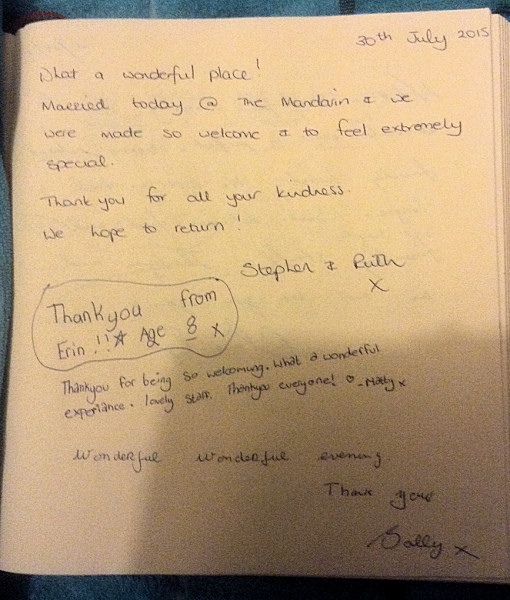 30th July 2015
What a wonderful place!
Married today @ The Mandarin & we
were made so welcome & to feel extremely
special.
Thank you for all your kindness.
We hope to return!
Stephen & Ruth
x
Thankyou from
Erin !! ☆ Age 8 x
Thankyou for being so welcoming. What a wonderful
experiance. lovely staff. Thankyou everyone! ♡ - Matty x
Wonderful wonderful evening
Thank you
Sally x